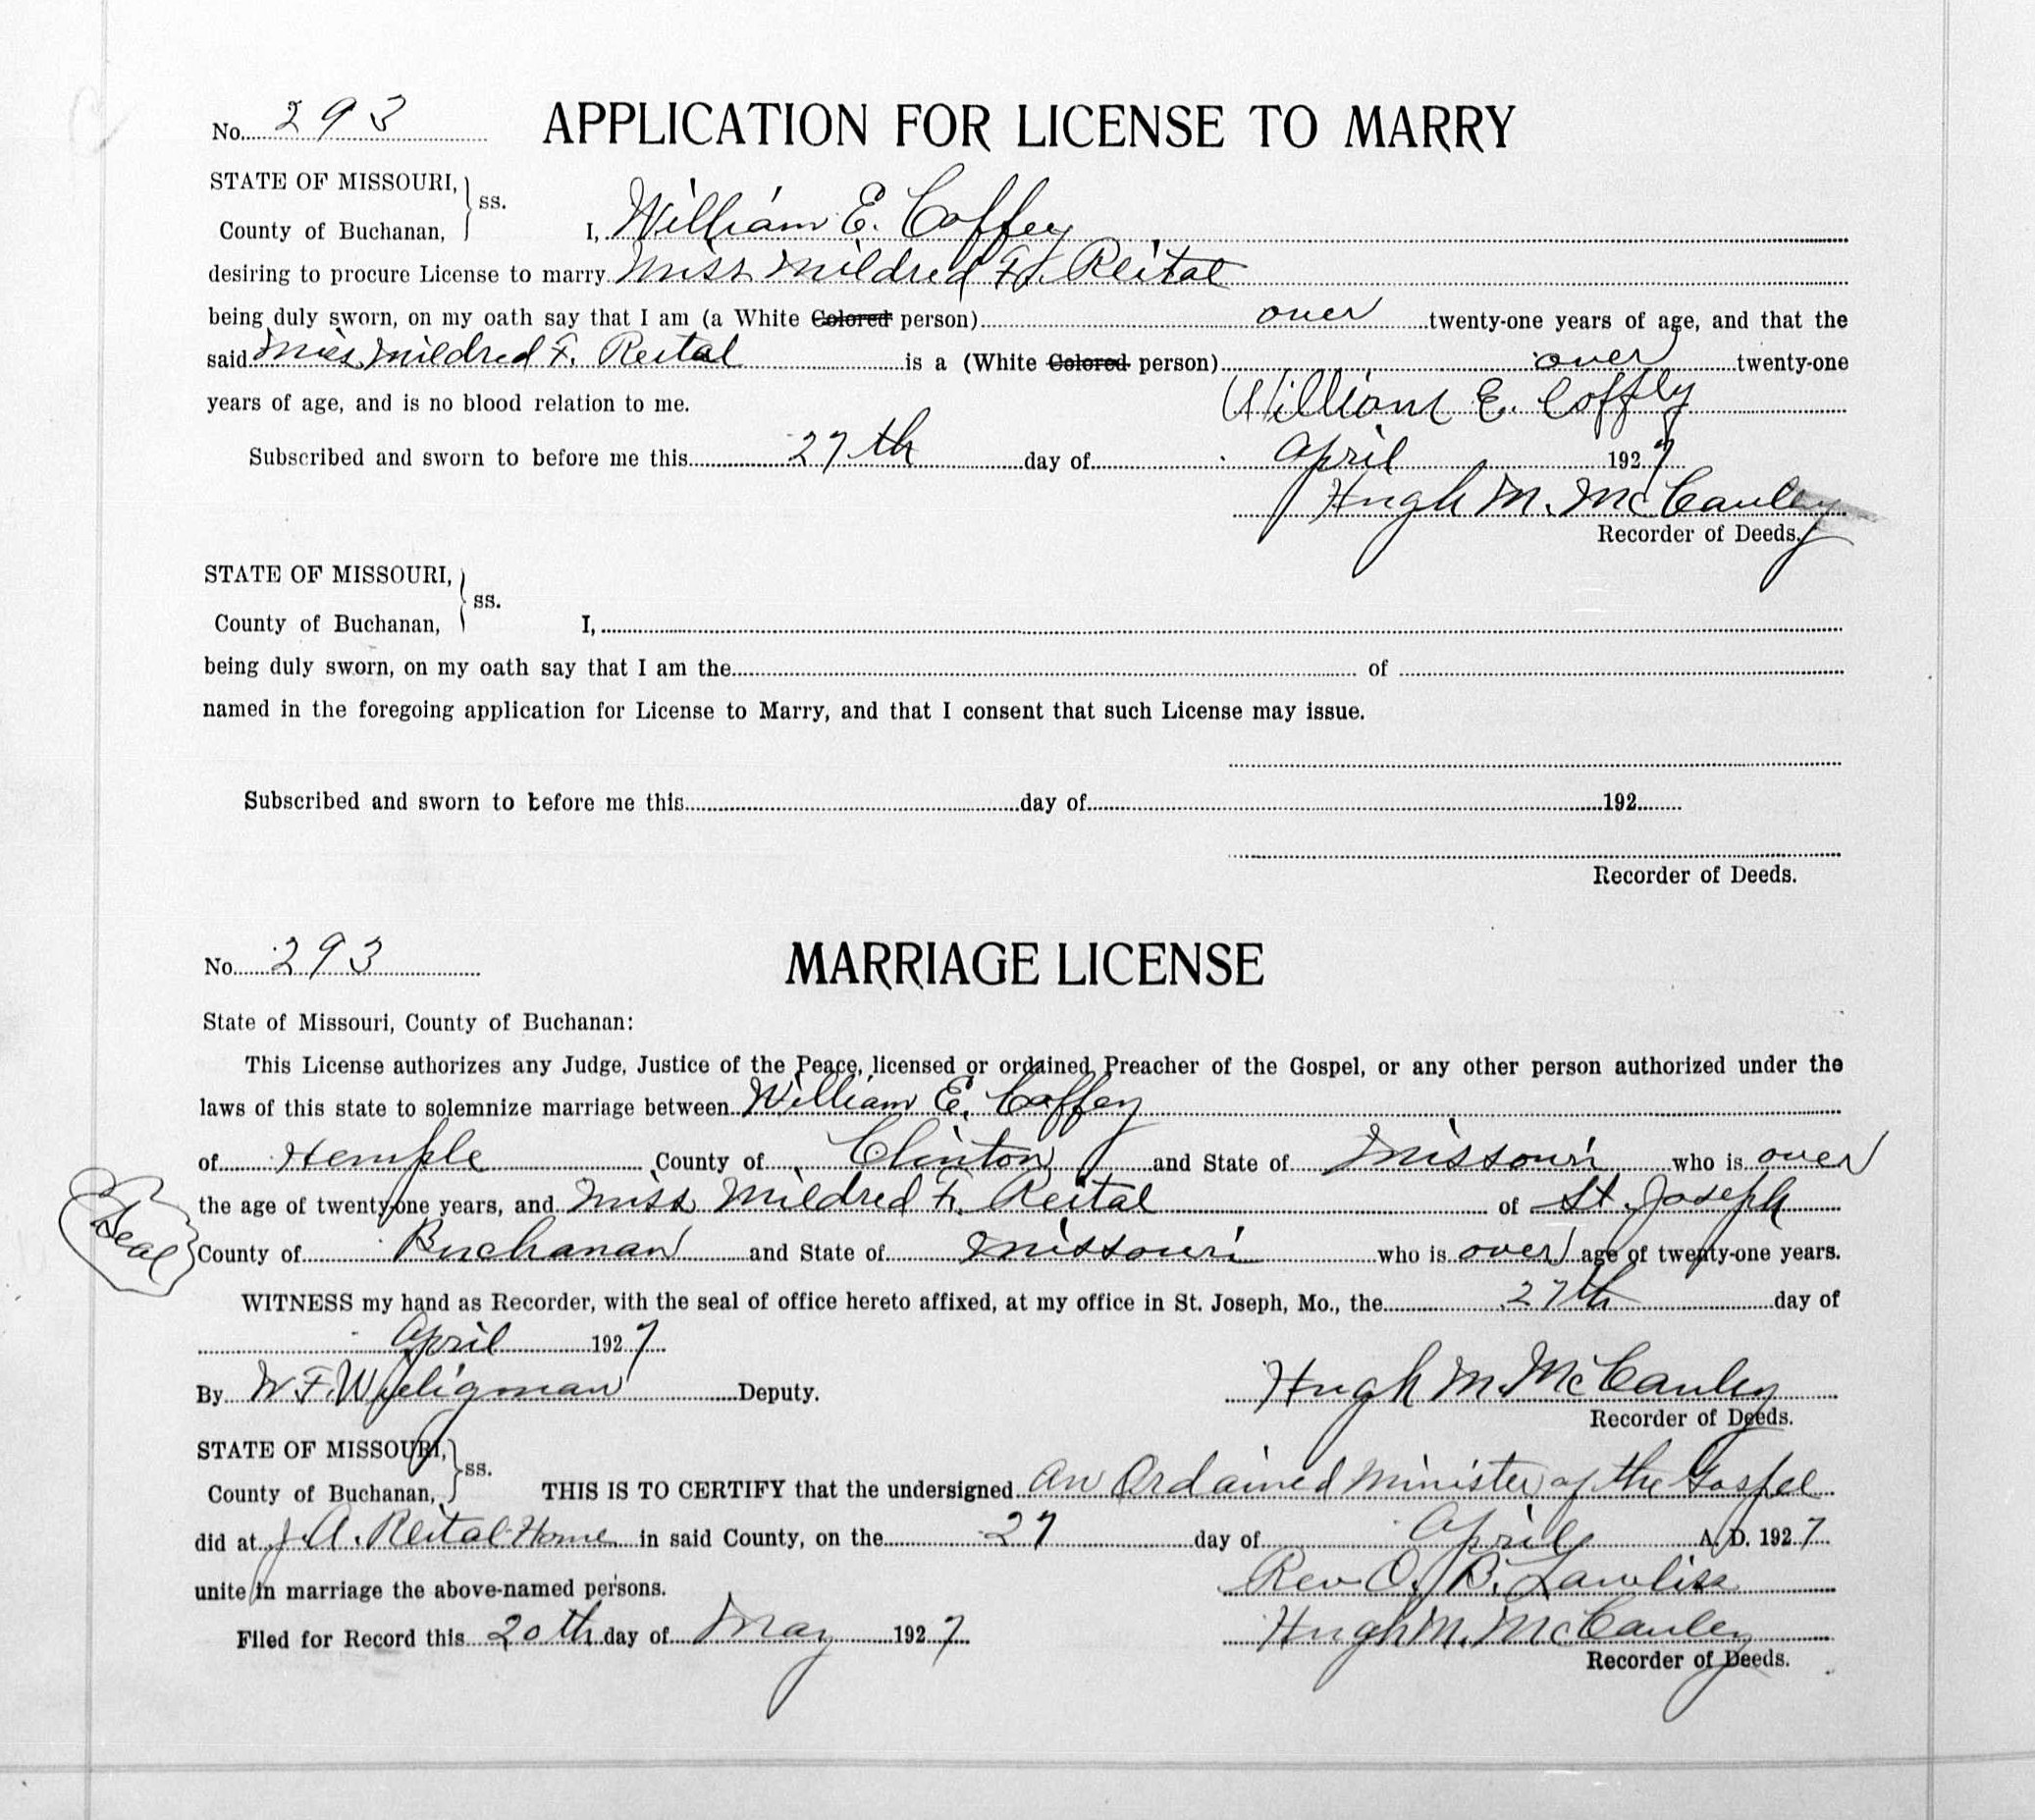 No. 293 APPLICATION FOR LICENSE TO MARRY
STATE OF MISSOURI, ss.
County of Buchanan, I, William E. Coffey
desiring to procure License to marry Miss Mildred F. Reital
being duly sworn, on my oath say that I am (a White Colored person) over twenty-one years of age, and that the
said Miss Mildred F. Reital is a (White Colored person) over twenty-one
years of age, and is no blood relation to me. William E. Coffey
Subscribed and sworn to before me this 27th day of April 1927
Hugh M. McCauley
Recorder of Deeds.
STATE OF MISSOURI, ss.
County of Buchanan, I,
being duly sworn, on my oath say that I am the of
named in the foregoing application for License to Marry, and that I consent that such License may issue.
Subscribed and sworn to before me this day of 192
Recorder of Deeds.
No. 293 MARRIAGE LICENSE
State of Missouri, County of Buchanan:
This License authorizes any Judge, Justice of the Peace, licensed or ordained Preacher of the Gospel, or any other person authorized under the
laws of this state to solemnize marriage between William E. Coffey
of Hemple County of Clinton and State of Missouri who is over
the age of twenty-one years, and Miss Mildred F. Reital of St. Joseph
Seal
County of Buchanan and State of Missouri who is over age of twenty-one years.
WITNESS my hand as Recorder, with the seal of office hereto affixed, at my office in St. Joseph, Mo., the 27th day of
April 1927
By W. F. Deputy. Hugh M. McCauley
Recorder of Deeds.
STATE OF MISSOURI, ss.
County of Buchanan, THIS IS TO CERTIFY that the undersigned An Ordained Minister of the Gospel
did at J. A. Reital Home in said County, on the 27 day of April A. D. 1927
unite in marriage the above-named persons. Rev O. B. Lawliss
Filed for Record this 20th day of May 1927 Hugh M. McCauley
Recorder of Deeds.